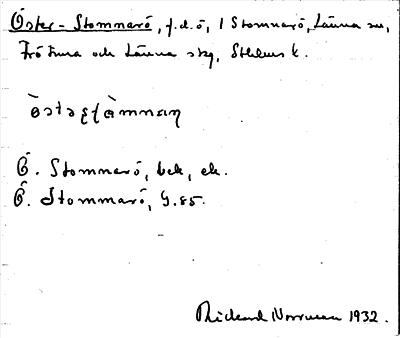 Öster-Stommarö, f.d.ö, 1 Stommarö, Länna sn,
Frötuna och Länna skg, Sthlms l.
Ö. Stommarö, bek, ek.
Ö. Stommarö, G.85.
Rickard Norrman 1932.